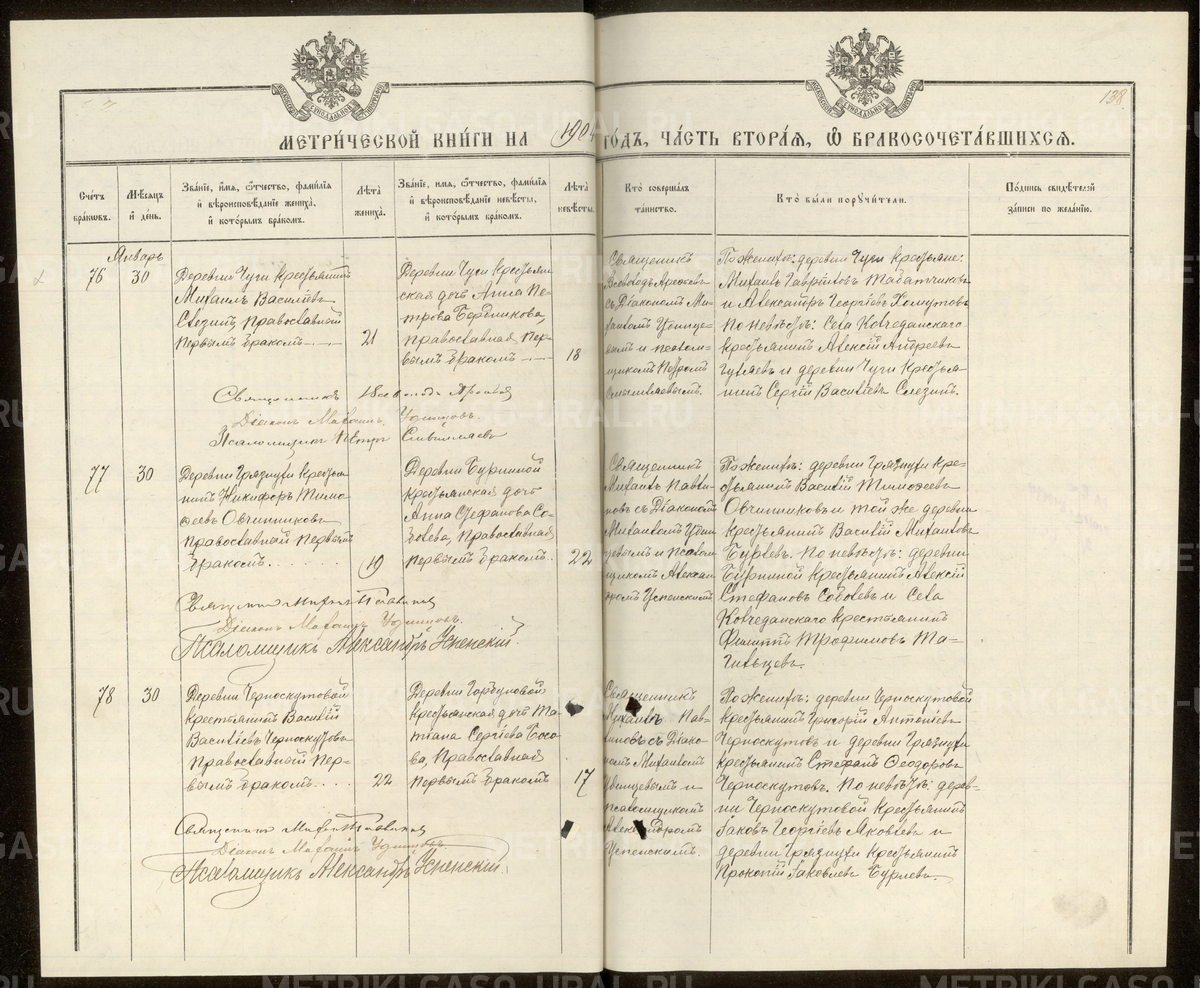 138
МЕТРИ́ЧЕСКОЙ КНИ́ГИ НА 1904 ГОДЪ, ЧА́СТЬ ВТОРА́Я, Ѿ БРАКОСОЧЕТА́ВШИХСЯ.
Сче́тъ бра́ковъ.
Мѣ́сяцъ и҆ де́нь.
Зва́нїе, и҆́мя, ѻ҆́тчество, фами́лїя и҆ вѣроисповѣ́данїе жениха̀, и҆ кото́рымъ бра́комъ.
Лѣ́та жениха̀.
Зва́нїе, и҆́мя, ѻ҆́тчество, фами́лїя и҆ вѣроисповѣ́данїе невѣ́сты, и҆ кото́рымъ бра́комъ.
Лѣ́та невѣ́сты.
Кто̀ соверша́лъ та́инство.
Кто̀ бы́ли порꙋчи́тели.
По́дпись свидѣ́телей за́писи по жела́нїю.
Январь
76
30
Деревни Чуги Крестьянинъ
Михаилъ Василіевъ
Слезинъ, Православный
Первымъ бракомъ
21
Деревни Чуги Кресть­ян-
ская дочь Анна Пе-
трова Бердникова,
православная, Пер-
вымъ бракомъ
18
Священникъ
Всеволодъ
съ Діакономъ Ми-
хаиломъ Удинце-
вымъ и псалом-
щикомъ Петромъ
Смышляевымъ.
По женихѣ: деревни Чуги крестьяне:
Михаилъ Гавріиловъ Табатчиковъ
и Александръ Георгіевъ Хомутовъ
По невѣстѣ: Села Колчеданскаго
крестьянинъ Алексій Андреевъ
Гуляевъ и деревни Чуги Крестья-
нинъ Сергій Василіевъ Слезинъ.
Священникъ Всеволодъ
Діаконъ Михаилъ Удинцовъ.
Псаломщикъ Петръ Смышляевъ
77
30
Деревни Грязнухи Крестья-
нинъ Никифоръ Тимо-
ѳеевъ Овчинниковъ
Православный Первымъ
бракомъ
19
Деревни Бурниной
Крестьянская дочь
Анна Стефанова Со-
болева, Православная
Первымъ бракомъ.
22
Священникъ
Михаилъ Павли-
новъ съ Діакономъ
Михаиломъ Удин-
цевымъ и псалом-
щикомъ Алексан-
дромъ Успенскимъ
По женихѣ: деревни Грязнухи Кре-
стьянинъ Василій Тимоѳеевъ
Овчинниковъ и той же деревни
Крестьянинъ Василій Михаиловъ
Бурлевъ. По невѣстѣ: деревни
Бурниной Крестьянинъ Алексій
Стефановъ Соболевъ и Села
Колчеданскаго Крестьянинъ
Филиппъ Трофимовъ Та-
гильцевъ.
Священникъ Михаилъ Павлиновъ
Діаконъ Михаилъ Удинцовъ.
Псаломщикъ Александръ Успенскій
78
30
Деревни Черноскутовой
Крестьянинъ Василій
Василіевъ Черноскутовъ
Православный Пер-
вымъ бракомъ
22
Деревни Горбуновой
Крестьянская дочь Та-
тіана Сергіева Босо-
ва, Православная
Первымъ бракомъ
17
Священникъ
Михаилъ Пав-
линовъ съ Діако-
номъ Михаиломъ
Удинцевымъ и
псаломщикомъ
Александромъ
Успенскимъ.
По женихѣ: деревни Черноскутовой
Крестьянинъ Григорій Антоніевъ
Черноскутовъ и деревни Грязнухи
Крестьянинъ Стефанъ Ѳеодоровъ
Черноскутовъ. По невѣстѣ: дерев-
ни Черноскутовой Крестьянинъ
Іаковъ Георгіевъ Яковлевъ и
деревни Грязнухи Крестьянинъ
Прокопій Іаковлевъ Бурлевъ.
Священникъ Михаилъ Павлиновъ
Діаконъ Михаилъ Удинцовъ.
Псаломщикъ Александръ Успенскій
METRIKI.GASO-URAL.RU